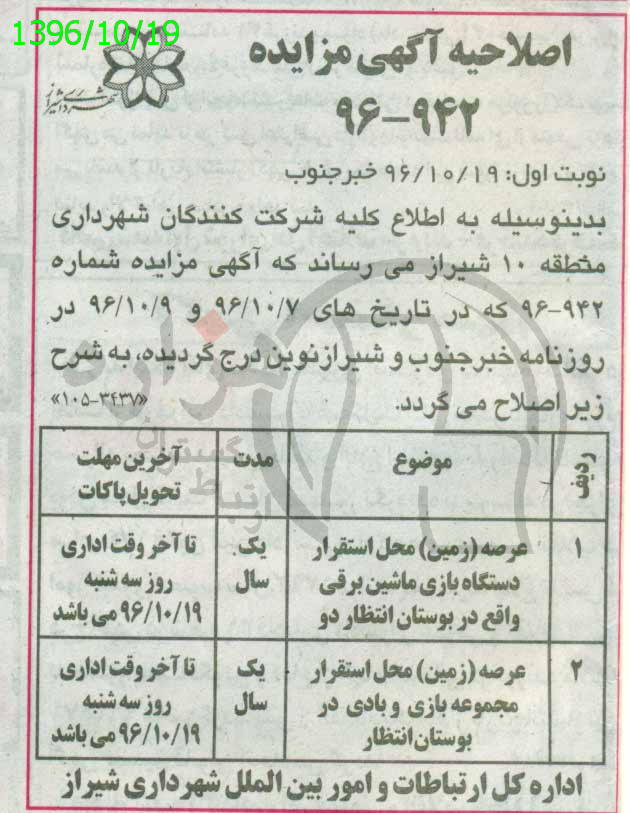 1396/10/19
اصلاحیه آگهی مزایده
۹۶-۹۴۲
نوبت اول: ۹۶/۱۰/۱۹ خبرجنوب
بدینوسیله به اطلاع کلیه شرکت کنندگان شهرداری
منطقه ۱۰ شیراز می رساند که آگهی مزایده شماره
۹۶-۹۴۲ که در تاریخ های ۹۶/۱۰/۷ و ۹۶/۱۰/۹ در
روزنامه خبرجنوب و شیرازنوین درج گردیده، به شرح
زیر اصلاح می گردد.
«۱۰۵-۳۴۳۷»
ردیف موضوع مدت آخرین مهلت
تحویل پاکات
۱ عرصه (زمین) محل استقرار یک تا آخر وقت اداری
دستگاه بازی ماشین برقی سال روز سه شنبه
واقع در بوستان انتظار دو ۹۶/۱۰/۱۹ می باشد
۲ عرصه (زمین) محل استقرار یک تا آخر وقت اداری
مجموعه بازی و بادی در سال روز سه شنبه
بوستان انتظار ۹۶/۱۰/۱۹ می باشد
اداره کل ارتباطات و امور بین الملل شهرداری شیراز
هزاره
گستران
ارتباط